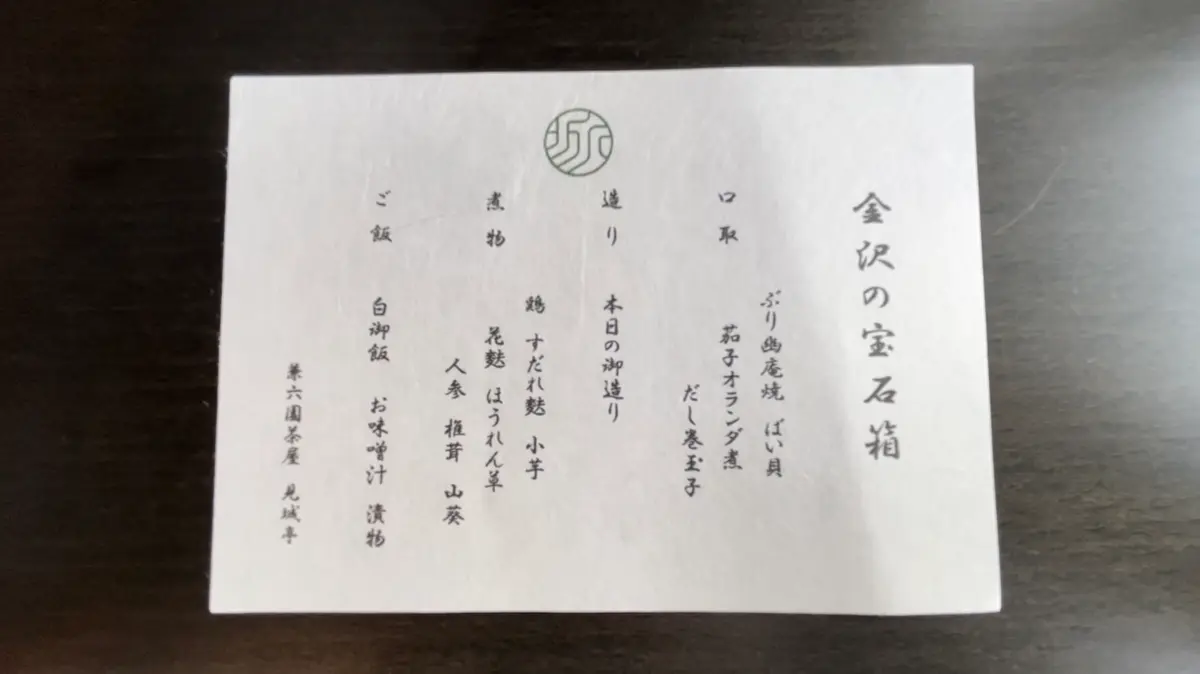 金沢の宝石箱
口取
ぶり幽庵焼 ばい貝
茄子オランダ煮
だし巻玉子
造り 本日の御造り
煮物
鶏 すだれ麩 小芋
花麩 ほうれん草
人参 椎茸 山葵
ご飯 白御飯 お味噌汁 漬物
兼六園茶屋 見城亭